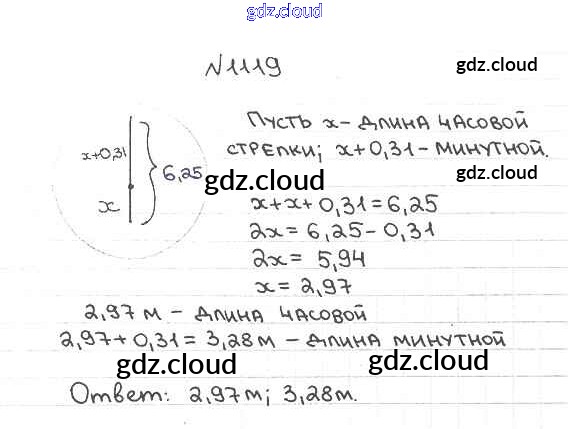 gdz.cloud
N1119
gdz.cloud
Пусть x - длина часовой
x+0,31
стрелки; x + 0,31 - минутной.
6,25
gdz.cloud
gdz.cloud
x
x + x + 0,31 = 6,25
2x = 6,25 - 0,31
2x = 5,94
x = 2,97
2,97 м - длина часовой
2,97 + 0,31 = 3,28 м - длина минутной
gdz.cloud
gdz.cloud
Ответ: 2,97 м; 3,28 м.